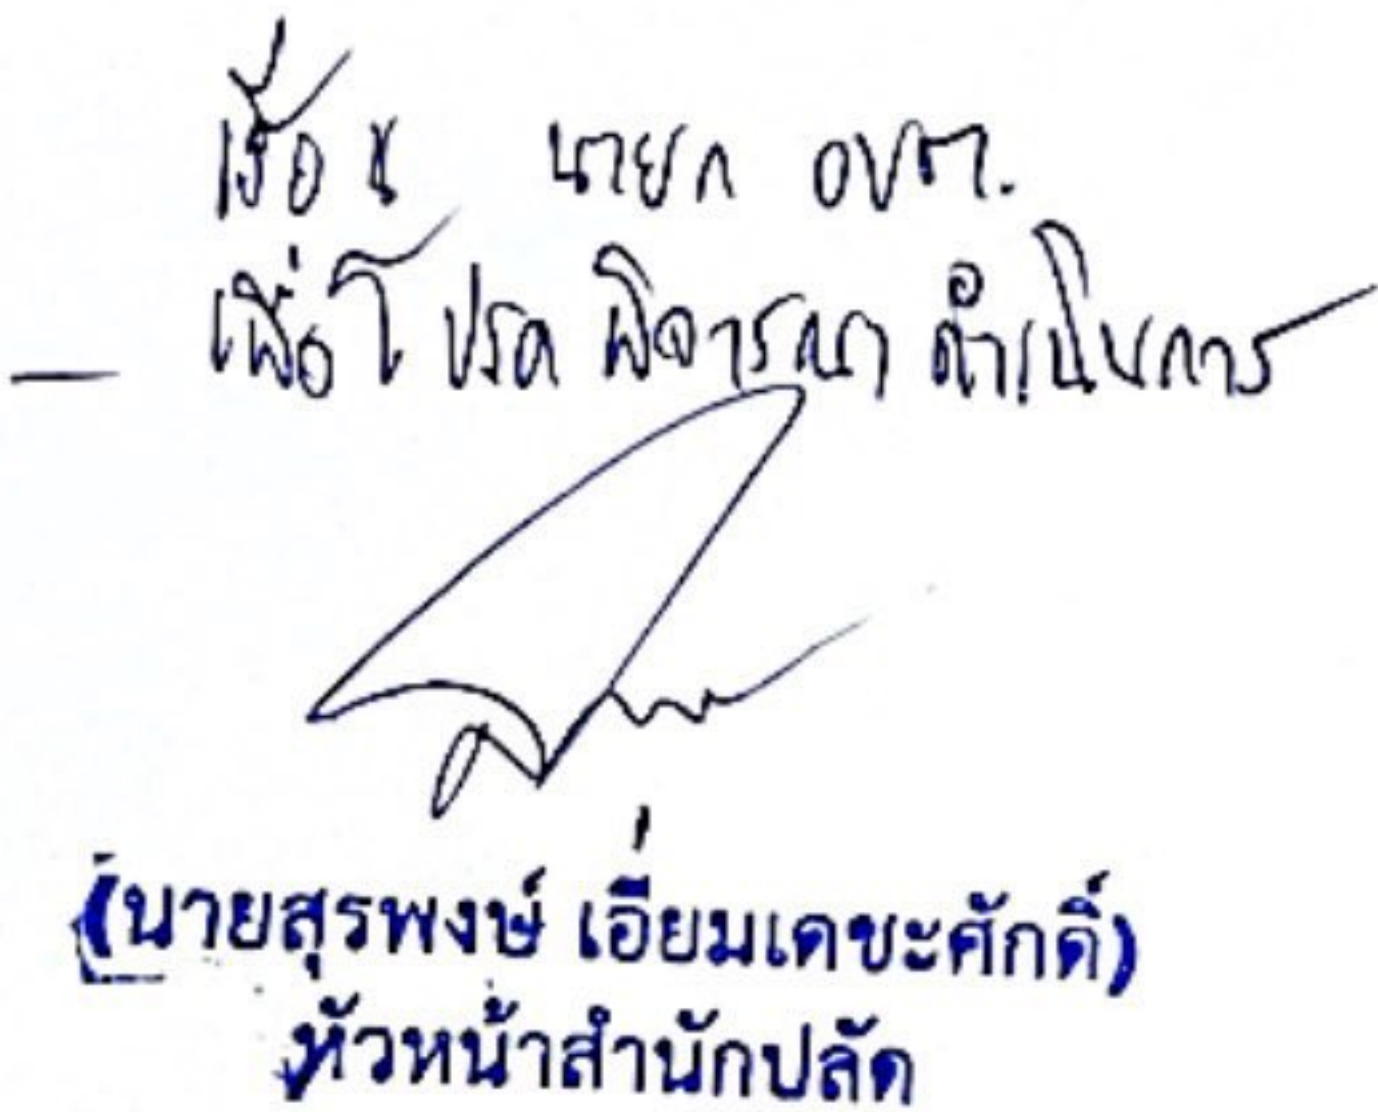 เรียน นายก อบต.
- เพื่อโปรดพิจารณาดำเนินการ
(นายสุรพงษ์ เอี่ยมเดชะศักดิ์)
หัวหน้าสำนักปลัด